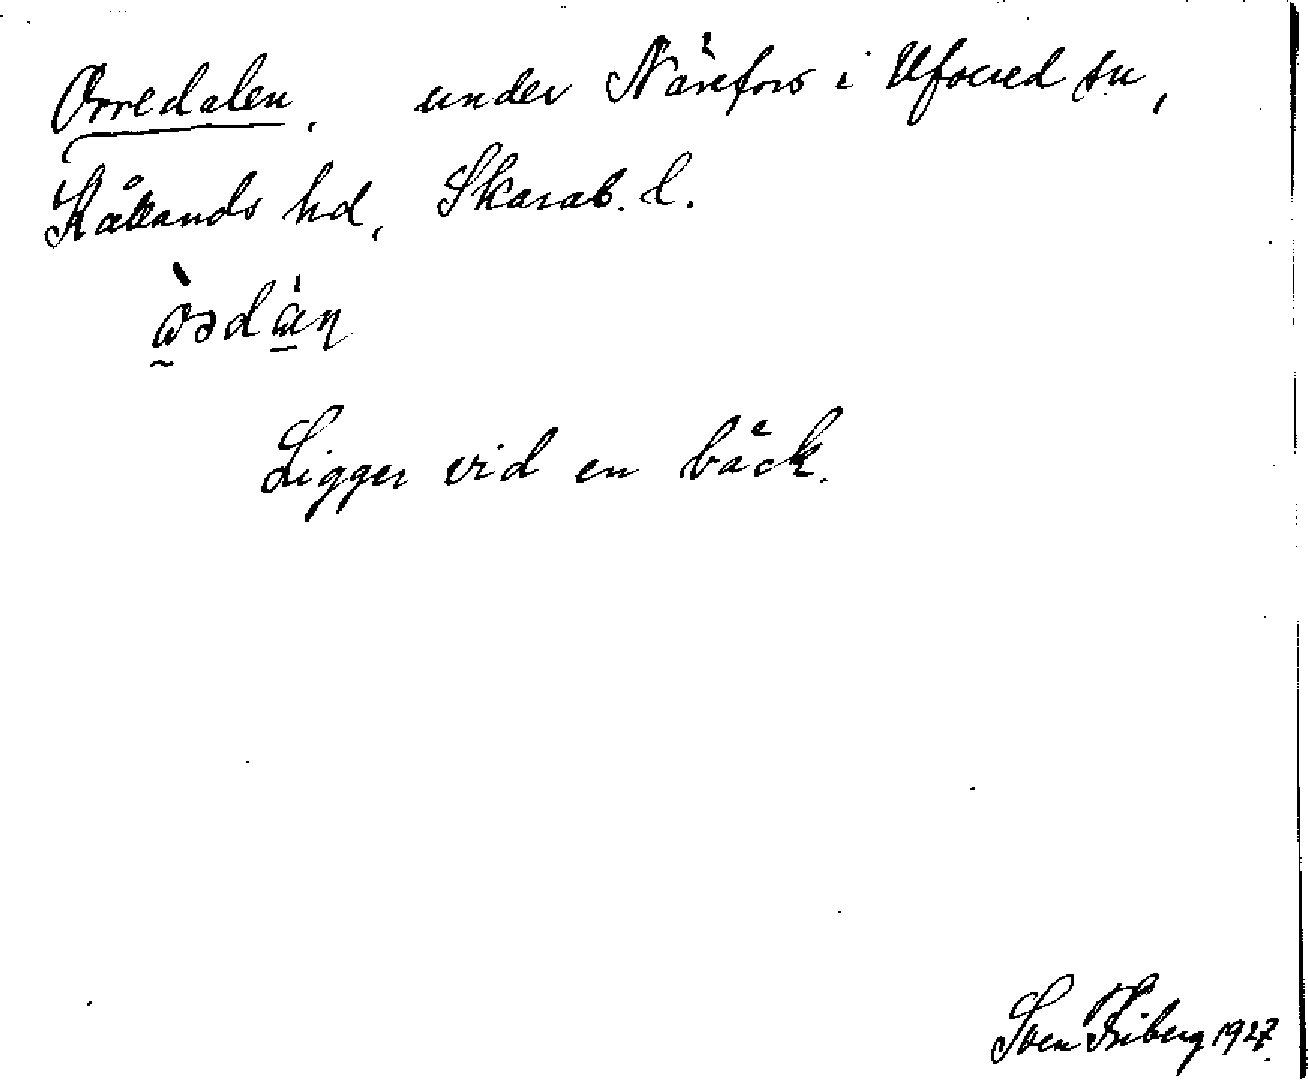 Orredalen, under Närefors i Ufvered sn,
Kållands hd, Skarab. l.
Ligger vid en bäck.
Sven Friberg 1927.